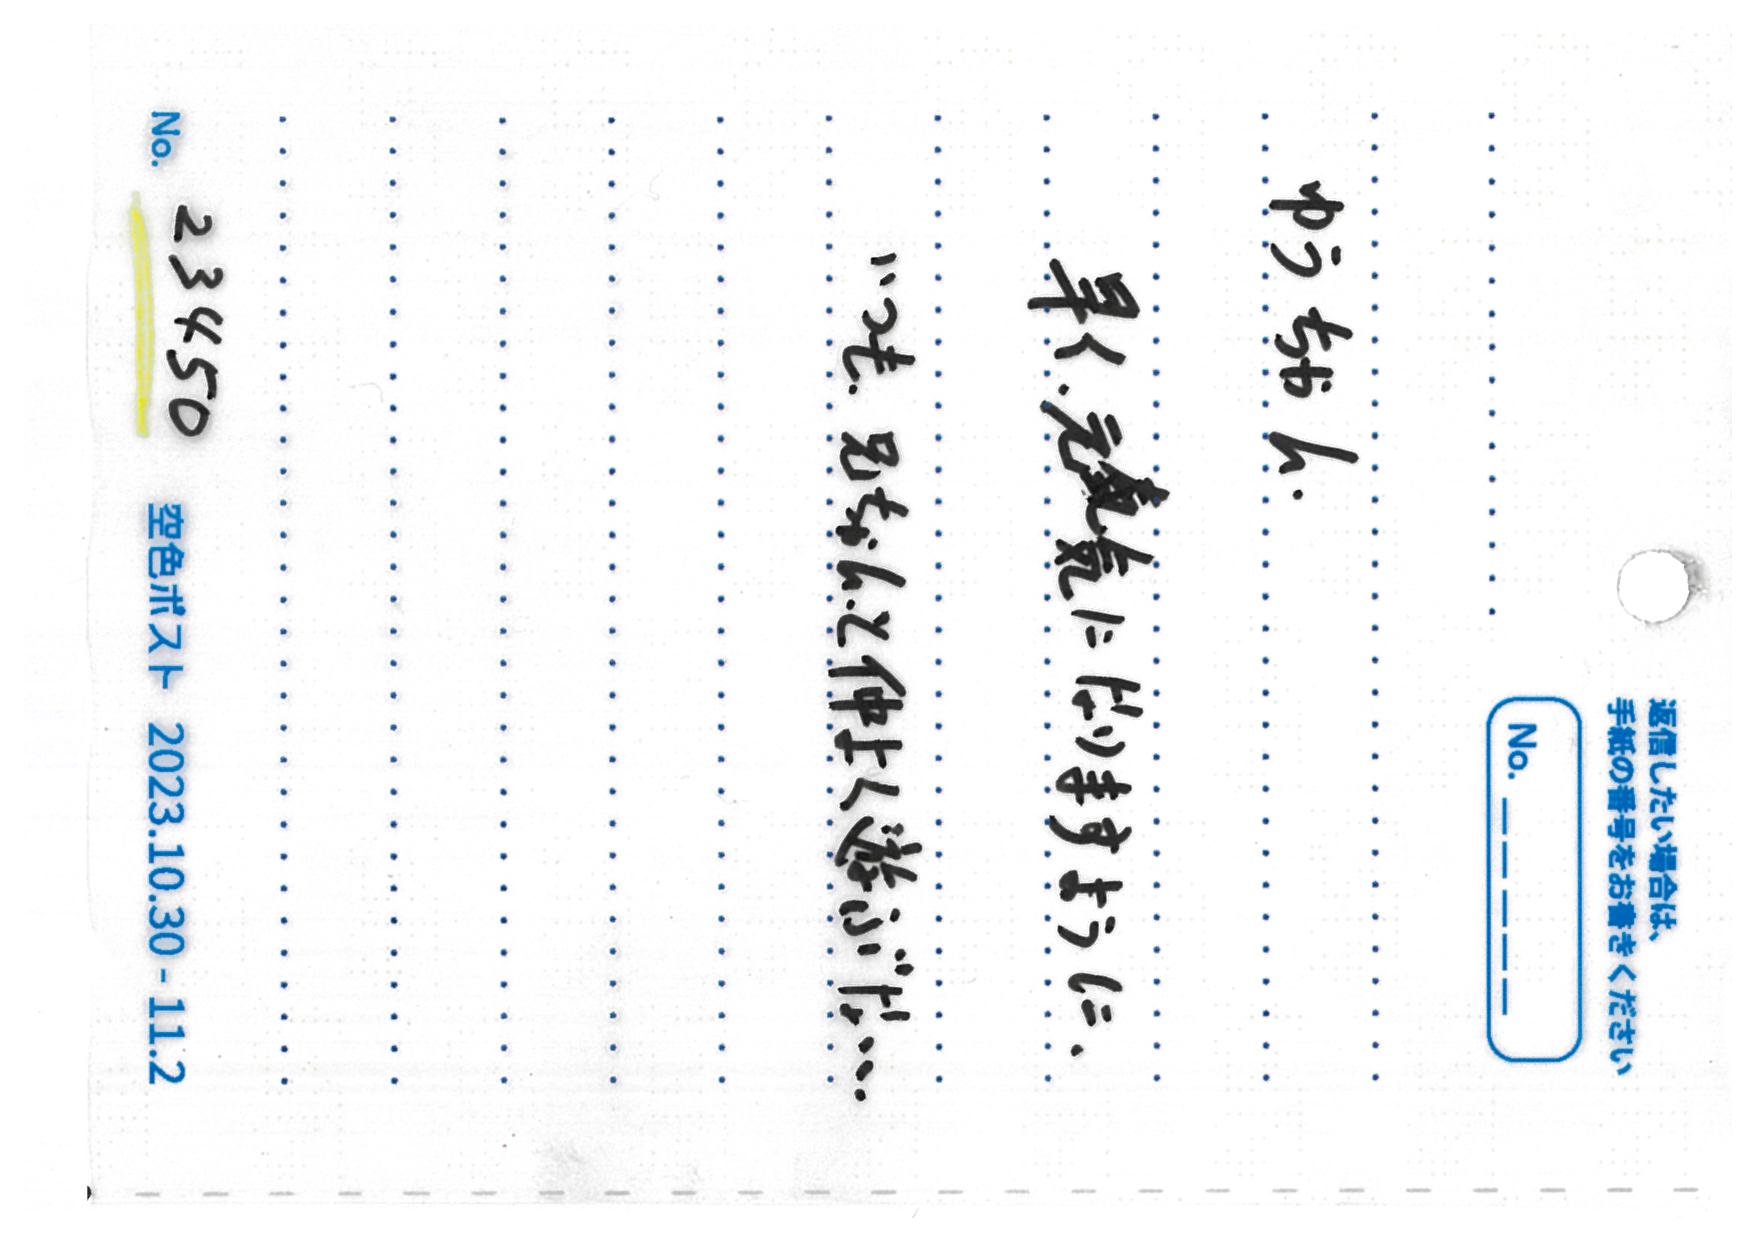 返信したい場合は、
手紙の番号をお書きください
No. _ _ _ _ _
ゆうちゃん.
早く.元気になりますように.
いつも.兄ちゃんと仲よく遊ぶな...
No. 23450 空色ポスト 2023.10.30 - 11.2